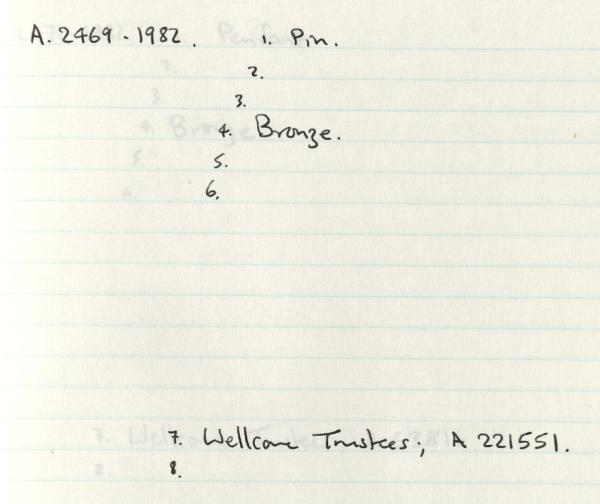 A. 2469. 1982. 1. Pin.
2.
3.
4. Bronze.
5.
6.
7. Wellcome Trustees; A 221551.
8.